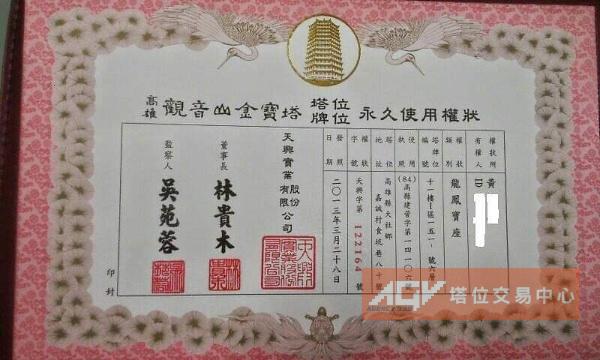 高雄 觀音山金寶塔 塔位牌位 永久使用權狀
權狀所有權人 黃
ID
權狀類別 龍鳳寶座
塔牌位編號 十一樓I區一五一號六層
使用執照 (84)高縣建管字第一四一〇六號
塔位地址 高雄縣大社鄉嘉誠村食坑巷八十號
權狀字號 天興字第122164號
發照日期 二〇一三年三月二十八日
天興實業股份有限公司
董事長 林貴木
監察人 吳苑蓉
印封
AGV 塔位交易中心